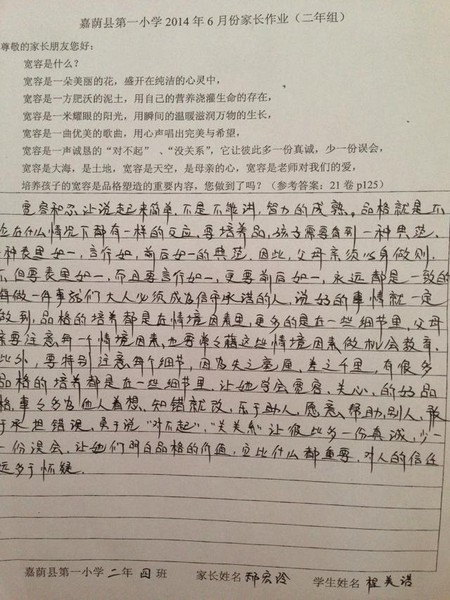 嘉荫县第一小学2014年6月份家长作业（二年组）
尊敬的家长朋友您好：
宽容是什么？
宽容是一朵美丽的花，盛开在纯洁的心灵中，
宽容是一方肥沃的泥土，用自己的营养浇灌生命的存在，
宽容是一米耀眼的阳光，用瞬间的温暖滋润万物的生长，
宽容是一曲优美的歌曲，用心声唱出完美与希望，
宽容是一声诚恳的“对不起”、“没关系”，它让彼此多一份真诚，少一份误会，
宽容是大海，是土地，宽容是天空，是母亲的心，宽容是老师对我们的爱，
培养孩子的宽容是品格塑造的重要内容，您做到了吗？（参考答案：21卷p125）
宽容和忍让说起来简单，不是不能讲，智力的成熟。品格就是不
在什么情况下都有一样的反应，要培养品，孩子需要看到一种典范，
种表里如一，言行如，前后如一的典范。因此，父母亲须以身做则，
不但要表里如一，而且要言行如一，更要前后如一，永远都是一致的
做一件事我们大人必须成为信守承诺的人，说好的事情就一定
做到，品格的培养都是在情境因素里，更多的是在一些细节里，父母
要注意每一个情境因素，也要掌握这些情境因素做机会教育，
此外，要特别注意每个细节，因为失之毫厘，差之千里，有很多
品格的培养都是在一些细节里，让她学会宽容、关心，的好品
格，事事多为他人着想，知错就改，乐于助人，愿意帮助别人，敢
于承担错误，勇于说“对不起”，“没关系”让彼此多一份真诚，少一
份误会，让她们明白品格的价值，且比什么都重要，对人的信任
远多于怀疑。
嘉荫县第一小学二年四班 家长姓名 学生姓名